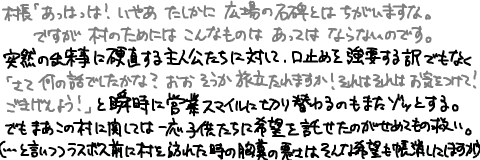 村長「あっはっは！いやあ たしかに 広場の石碑とは ちがいますな。
ですが 村のためには こんなものは あっては ならないのです。
突然の出来事に硬直する主人公たちに対して、口止めを強要する訳でもなく
「さて 何の話でしたかな？おお そうか 旅立たれますか！それはそれは お気をつけて！
ごきげんよう！」と瞬時に営業スマイルに切り替わるのもまたゾッとする。
でもまあこの村に関しては一応子供たちに希望を託せたのがせめてもの救い。
(…と言いつつラスボス前に村を訪れた時の胸糞の悪さはそんな希望も帳消しにするが)